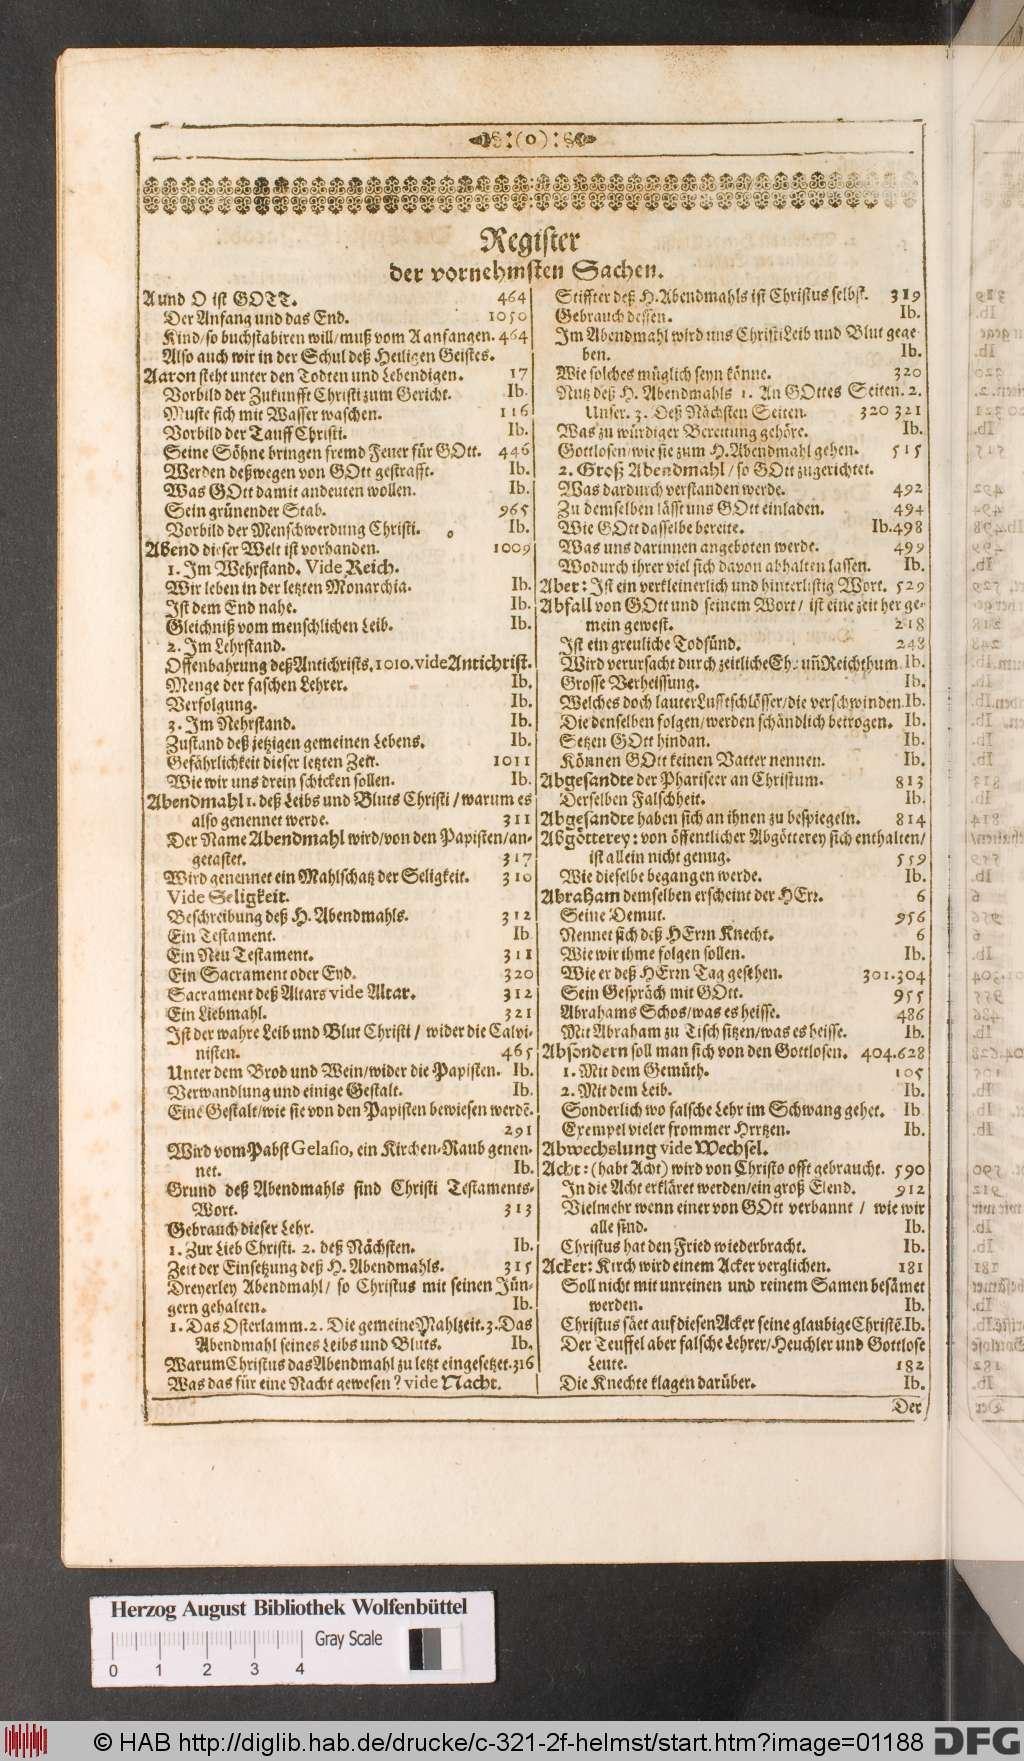 :(o):
Register
der vornehmsten Sachen.
A und O ist GOTT. 464
Der Anfang und das End. 1050
Kind/so buchstabiren will/muß vom A anfangen. 464
Also auch wir in der Schul deß Heiligen Geistes.
Aaron steht unter den Todten und Lebendigen. 17
Vorbild der Zukunfft Christi zum Gericht. Ib.
Muste sich mit Wasser waschen. 116
Vorbild der Tauff Christi. Ib.
Seine Söhne bringen fremd Feuer für GOtt. 446
Werden deßwegen von GOtt gestrafft. Ib.
Was GOtt damit andeuten wollen. Ib.
Sein grünender Stab. 965
Vorbild der Menschwerdung Christi. Ib.
Abend dieser Welt ist vorhanden. 1009
1. Im Wehrstand. Vide Reich.
Wir leben in der letzten Monarchia. Ib.
Ist dem End nahe. Ib.
Gleichniß vom menschlichen Leib. Ib.
2. Im Lehrstand.
Offenbahrung deß Antichrists, 1010. vide Antichrist.
Menge der faschen Lehrer. Ib.
Verfolgung. Ib.
3. Im Nehrstand. Ib.
Zustand deß jetzigen gemeinen Lebens. Ib.
Gefährlichkeit dieser letzten Zeit. 1011
Wie wir uns drein schicken sollen. Ib.
Abendmahl 1. deß Leibs und Bluts Christi / warum es
also genennet werde. 311
Der Name Abendmahl wird/von den Papisten/an-
getastet. 317
Wird genennet ein Mahlschatz der Seligkeit. 310
Vide Seligkeit.
Beschreibung deß H. Abendmahls. 312
Ein Testament. Ib
Ein Neu Testament. 311
Ein Sacrament oder Eyd. 320
Sacrament deß Altars vide Altar. 312
Ein Liebmahl. 321
Ist der wahre Leib und Blut Christi / wider die Calvi-
nisten. 465
Unter dem Brod und Wein/wider die Papisten. Ib.
Verwandlung und einige Gestalt. Ib.
Eine Gestalt/wie sie von den Papisten bewiesen werdē.
291
Wird vom Pabst Gelasio, ein Kirchen-Raub genen-
net. Ib.
Grund deß Abendmahls sind Christi Testaments-
Wort. 313
Gebrauch dieser Lehr.
1. Zur Lieb Christi. 2. deß Nächsten. Ib.
Zeit der Einsetzung deß H. Abendmahls. 315
Dreyerley Abendmahl/ so Christus mit seinen Jün-
gern gehalten. Ib.
1. Das Osterlamm. 2. Die gemeine Mahlzeit. 3. Das
Abendmahl seines Leibs und Bluts. Ib.
Warum Christus das Abendmahl zu letzt eingesetzet. 316
Was das für eine Nacht gewesen? vide Nacht.
Stiffter deß H. Abendmahls ist Christus selbst. 319
Gebrauch dessen. Ib.
Im Abendmahl wird uns Christi Leib und Blut gege-
ben. Ib.
Wie solches müglich seyn könne. 320
Nutz deß H. Abendmahls 1. An GOttes Seiten. 2.
Unser. 3. Deß Nächsten Seiten. 320 321
Was zu würdiger Bereitung gehöre. Ib.
Gottlosen/wie sie zum H. Abendmahl gehen. 515
2. Groß Abendmahl / so GOtt zugerichtet.
Was dardurch verstanden werde. 492
Zu demselben lässt uns GOtt einladen. 494
Wie GOtt dasselbe bereite. Ib. 498
Was uns darinnen angeboten werde. 499
Wodurch ihrer viel sich davon abhalten lassen. Ib.
Aber: Ist ein verkleinerlich und hinterlistig Wort. 529
Abfall von GOtt und seinem Wort / ist eine zeit her ge-
mein gewest. 218
Ist ein greuliche Todsünd. 248
Wird verursacht durch zeitliche Eh: uñ Reichthum Ib.
Grosse Verheissung. Ib.
Welches doch lauter Lufftschlösser/die verschwinden Ib.
Die denselben folgen/werden schändlich betrogen. Ib.
Setzen GOtt hindan. Ib.
Können GOtt keinen Vatter nennen. Ib.
Abgesandte der Phariseer an Christum. 813
Derselben Falschheit. Ib.
Abgesandte haben sich an ihnen zu bespiegeln. 814
Abgötterey: von öffentlicher Abgötterey sich enthalten/
ist allein nicht genug. 559
Wie dieselbe begangen werde. Ib.
Abraham demselben erscheint der HErr. 6
Seine Demut. 956
Nennet sich deß HErrn Knecht. 6
Wie wir ihme folgen sollen. Ib.
Wie er deß HErrn Tag gesehen. 301.304
Sein Gespräch mit GOtt. 955
Abrahams Schos/was es heisse. 486
Mit Abraham zu Tisch sitzen/was es heisse. Ib.
Absöndern soll man sich von den Gottlosen. 404.628
1. Mit dem Gemüth. 105
2. Mit dem Leib. Ib.
Sonderlich wo falsche Lehr im Schwang gehet. Ib
Exempel vieler frommer Hertzen. Ib.
Abwechslung vide Wechsel.
Acht: (habt Acht) wird von Christo offt gebraucht. 590
In die Acht erkläret werden/ein groß Elend. 912
Vielmehr wenn einer von GOtt verbannt / wie wir
alle sind. Ib.
Christus hat den Fried wiederbracht. Ib.
Acker: Kirch wird einem Acker verglichen. 181
Soll nicht mit unreinen und reinem Samen besämet
werden. Ib.
Christus säet auf diesen Acker seine glaubige Christē. Ib.
Der Teuffel aber falsche Lehrer/Heuchler und Gottlose
Leute. 182
Die Knechte klagen darüber. Ib.
Der
Herzog August Bibliothek Wolfenbüttel
0 1 2 3 4 Gray Scale
© HAB http://diglib.hab.de/drucke/c-321-2f-helmst/start.htm?image=01188 DFG